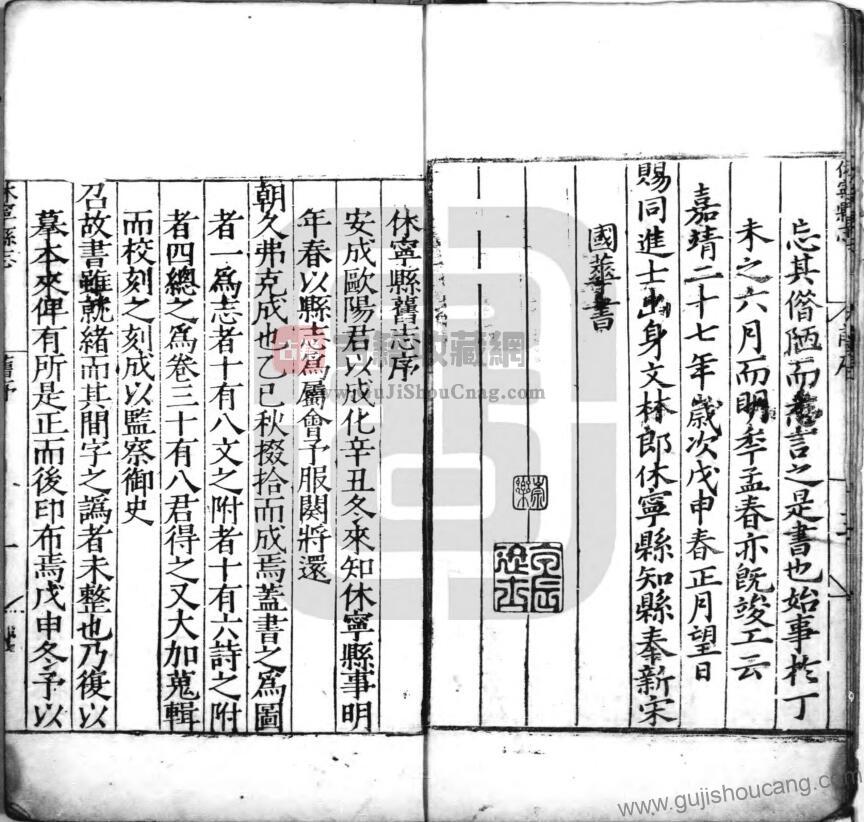 忘其僭陋而為言之是書也始事於丁
未之六月而明季孟春亦既竣工云
嘉靖二十七年歲次戊申春正月望日
賜同進士出身文林郎休寧縣知縣奉新宋
國華書
休寧縣舊志序
安成歐陽君以成化辛丑冬來知休寧縣事明
年春以縣志為屬會予服闋將還
朝久弗克成也乙巳秋掇拾而成焉蓋書之為圖
者一為志者十有八文之附者十有六詩之附
者四總之為卷三十有八君得之又大加蒐輯
而校刻之刻成以監察御史
召故書雖就緒而其間字之譌者未整也乃復以
摹本來俾有所是正而後印布焉戊申冬予以
休寧縣志
舊序
一
古籍收藏網
www.GuJiShouCang.com
www.gujishoucang.com